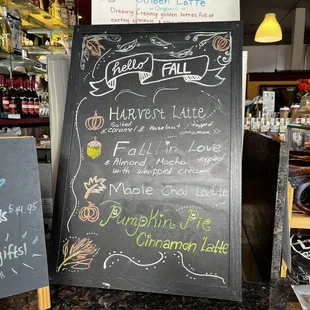 Golden Latte
Dreamy Creamy golden lattes full of
hello FALL
HARVEST LATTE
Salted
& caramel & Hazelnut topped
cinnamon
FALL in LOVE
& Almond Mocha topped
with whipped cream
Maple Chai Latte
Pumpkin Pie
Cinnamon Latte
gifts!